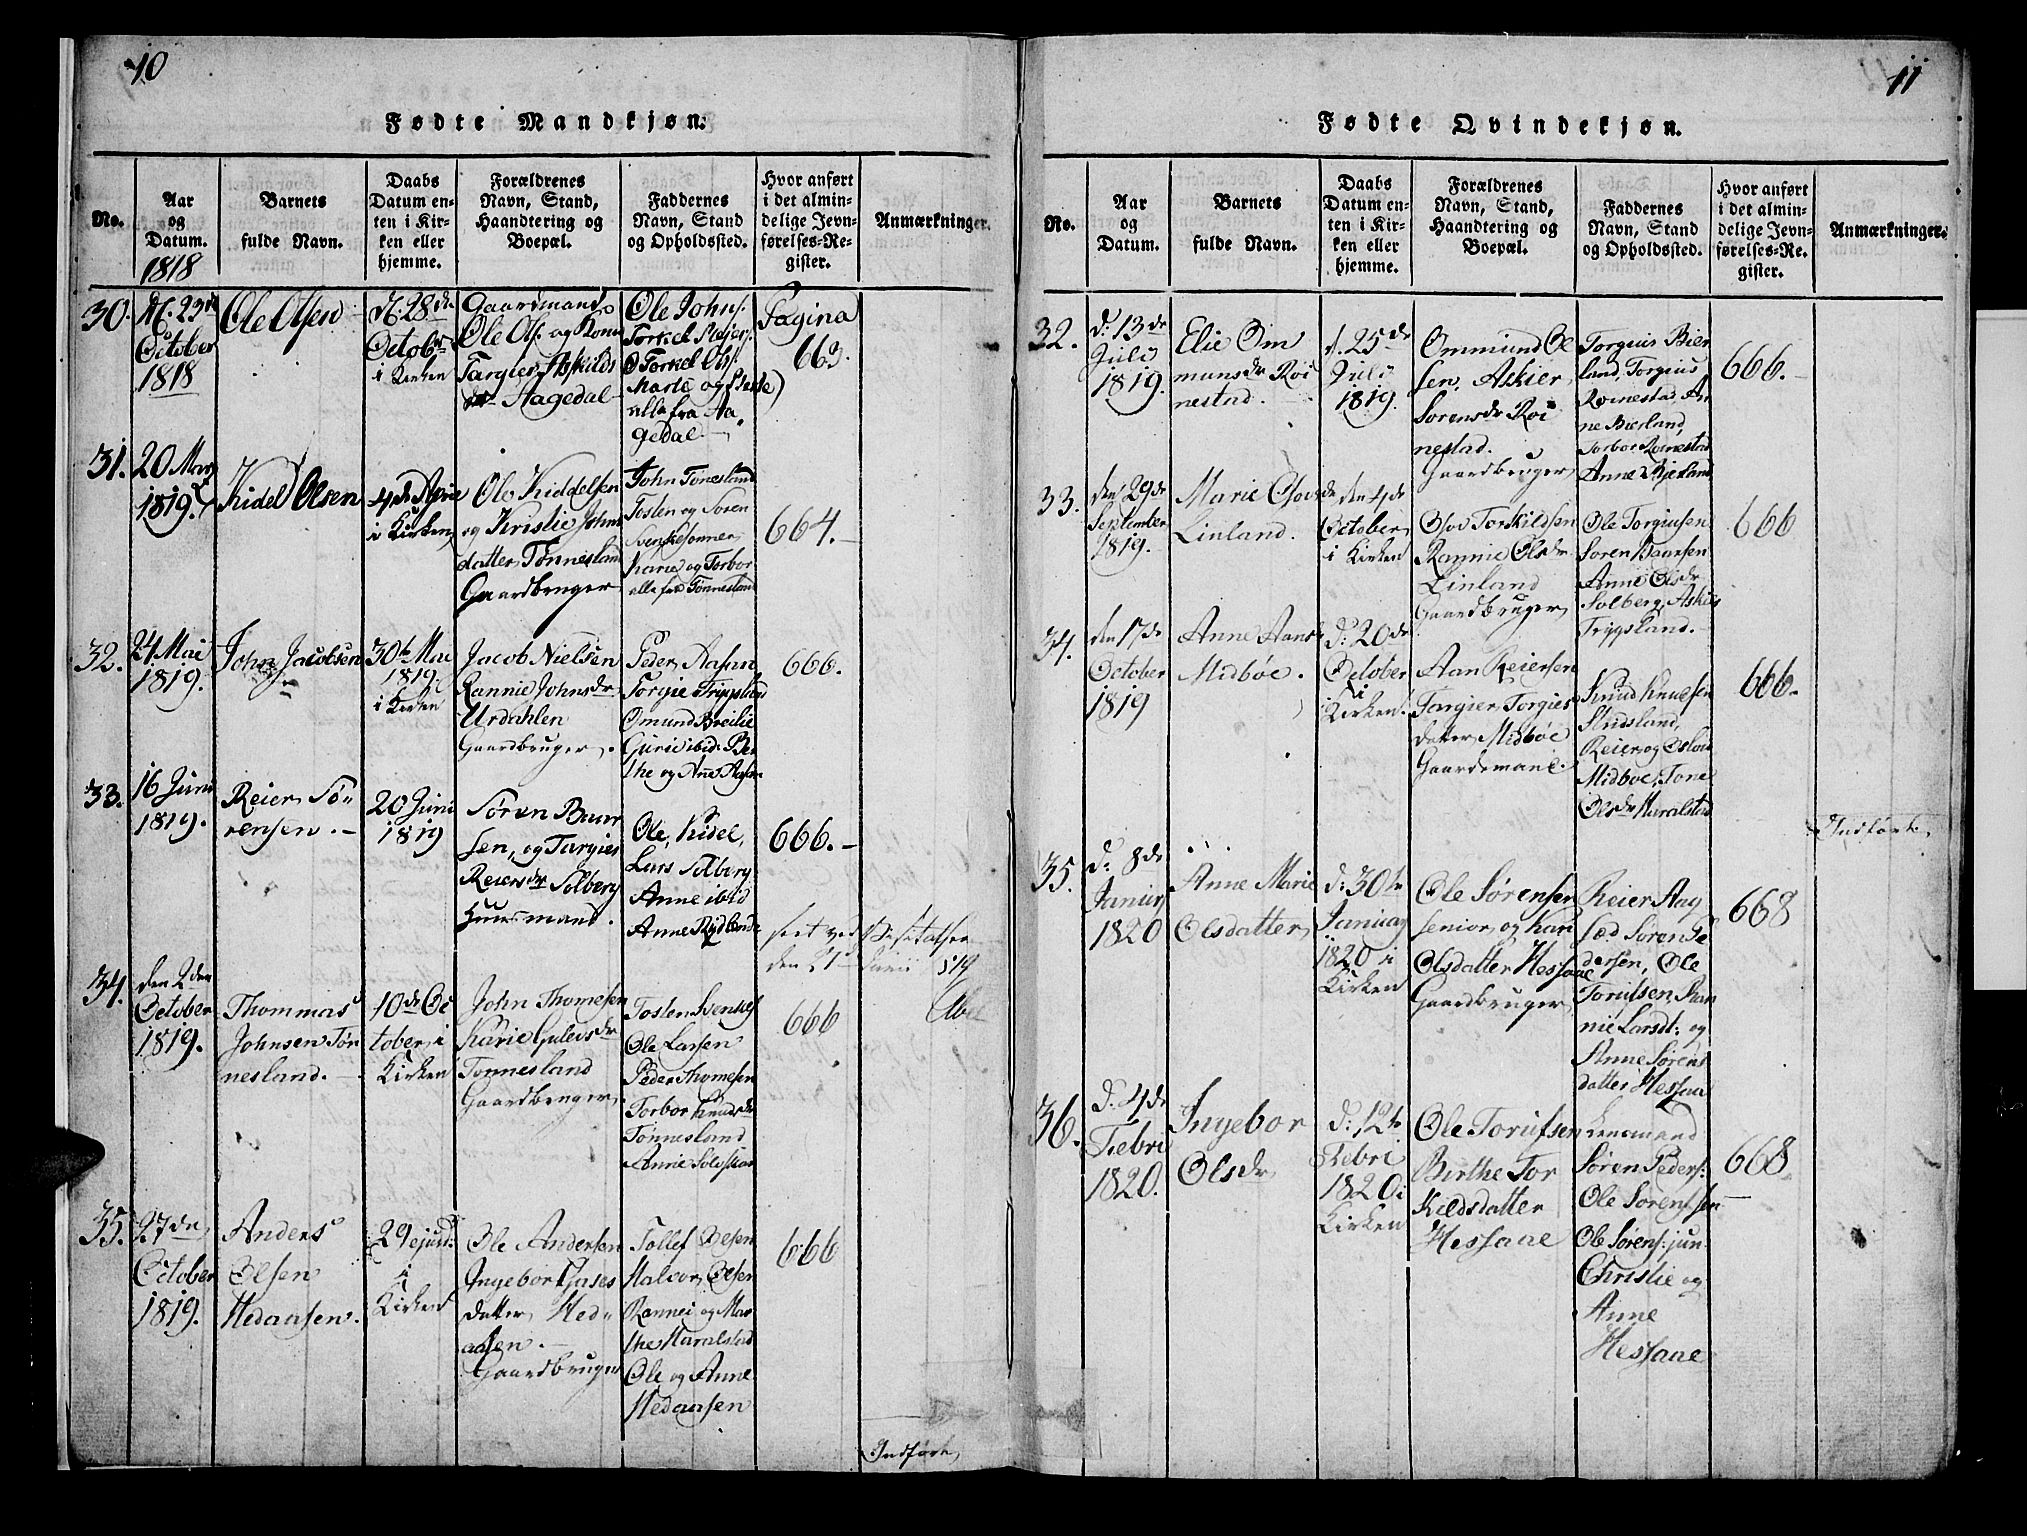 10
Fødte Mandkjøn.
No.
Aar
og
Datum.
1818
Barnets
fulde Navn.
Daabs
Datum en-
ten i Kir-
ken eller
hjemme.
Forældrenes
Navn, Stand,
Haandtering og
Boepæl.
Faddernes
Navn, Stand
og Opholdssted.
Hvor anført
i det almin-
delige Jevn-
førelses-Re-
gister.
Anmærkninger.
30.
d. 23de
October
1818
Ole Olsen
d. 28de
October
i Kirken
Gaardmand
Ole Ols. og Kone
Targier Askilds
dr Aagedal
Ole Johns.
Torkel
Torkel Ols.
Marte og
alle fra Aa
gedal
Pagina
663.
31.
20 Marz
1819.
Kidel Olsen
4de April
i Kirken
Ole Kiddelsen
og Kristie Johns
datter Tønnesland
Gaardbruger
John Tønesland
Tosten og Soren
Svenkesønner
Karie og Torbor
alle fra Tønnesland
664.
32.
24 Mai
1819.
John Jacobsen
30te Mai
1819.
i Kirken
Jacob Nielsen
Rannie Johnsdr
Urdahlen
Gaardbruger.
Peder Aasan
Torgie Trygsland
Omund Breilie
Gurie ibid: Ber
the og Anne Aasan
666.
33.
16 Juni
1819.
Reier Sö-
rensen.
20 Juni
1819
Søren Baar
sen, og Targies
Reiersdr Solberg
Huusmand.
Ole, Kidel,
Lars Solberg
Anne ibid
Anne Rydland
666.
seet ved Visitatsen
den 21 Junii 1819
34.
den 2den
October
1819.
Thommas
Johnsen Tön
nesland.
10de Oc
tober i
Kirken
John Thomesen
Karie Gulevsdr
Tonnesland
Gaardbruger
Tosten Svenkes
Ole Larsen
Peder Thomesen
Torbor Knudsdr
Tønnesland
Annie
666
35.
27de
October
1819.
Anders
Olsen
Hedaasen.
29 ejusd:
i
Kirken
Ole Andersen
Ingebor Aases
datter Hed-
aasen.
Gaardbruger
Tollef Olsen
Halvor Olsen
Rannei og Mar
the Haralstad
Ole og Anne
Hedaasen
666
Indført
11
Fødte Qvindekjøn.
No.
Aar
og
Datum.
Barnets
fulde Navn.
Daabs
Datum en-
ten i Kir-
ken eller
hjemme.
Forældrenes
Navn, Stand,
Haandtering og
Boepæl.
Faddernes
Navn, Stand
og Opholdssted.
Hvor anført
i det almin-
delige Jevn-
førelses-Re-
gister.
Anmærkninger.
32.
d: 13de
Juli
1819.
Elie Om
munsdr Roi
nestad.
d. 25de
Juli
1819.
Ommund Ol
sen, Askier
Sorensdr Roi
nestad.
Gaardbruger
Torgius Bier
land, Torgius
Roinestad, An
ne Bierland,
Torbor Roinestad
Anne Bjerland
666.
33.
den 29de
September
1819.
Marie Osvsdr
Linland.
den 4de
October
i Kirken
Osov Torkildsen
Rannie Olsdr
Linland
Gaardbruger
Ole Torgiusen
Soren Baarsen
Anne Olsdr
Solberg, Askies
Trygsland.
666
34.
den 17de
October
1819
Anne Aansdr
Midböe.
d: 20de
October
i
Kirken.
Aan Reiersen
Targier Torgies
datter Midböe
Gaardemand.
Knud Knudsen
Studsland,
Reier og
Midböe, Tone
Olsdr Haralstad
666.
Indført
35.
d: 8de
Januar
1820
Anne Marie
Olsdatter
d: 30te
Januar
1820 i
Kirken
Ole Sørensen
senior og Kari
Olsdatter Hessaae
Gaardbruger
Reier Aag
sæd Soren Pe
dersen, Ole
Torufsen, Ran
nie Larsdt: og
Anne Sørens
datter Hessaa
668
36.
d: 4de
Febri
1820.
Ingebor
Olsdr
d: 12te
Febri
1820 i
Kirken
Ole Torufsen
Birthe Tor
Kildsdatter
Hessaae
Lensmand
Søren Peders:
Ole Sorensen
Ole Sørens: jun
Christie og
Anne
Hessaae
668